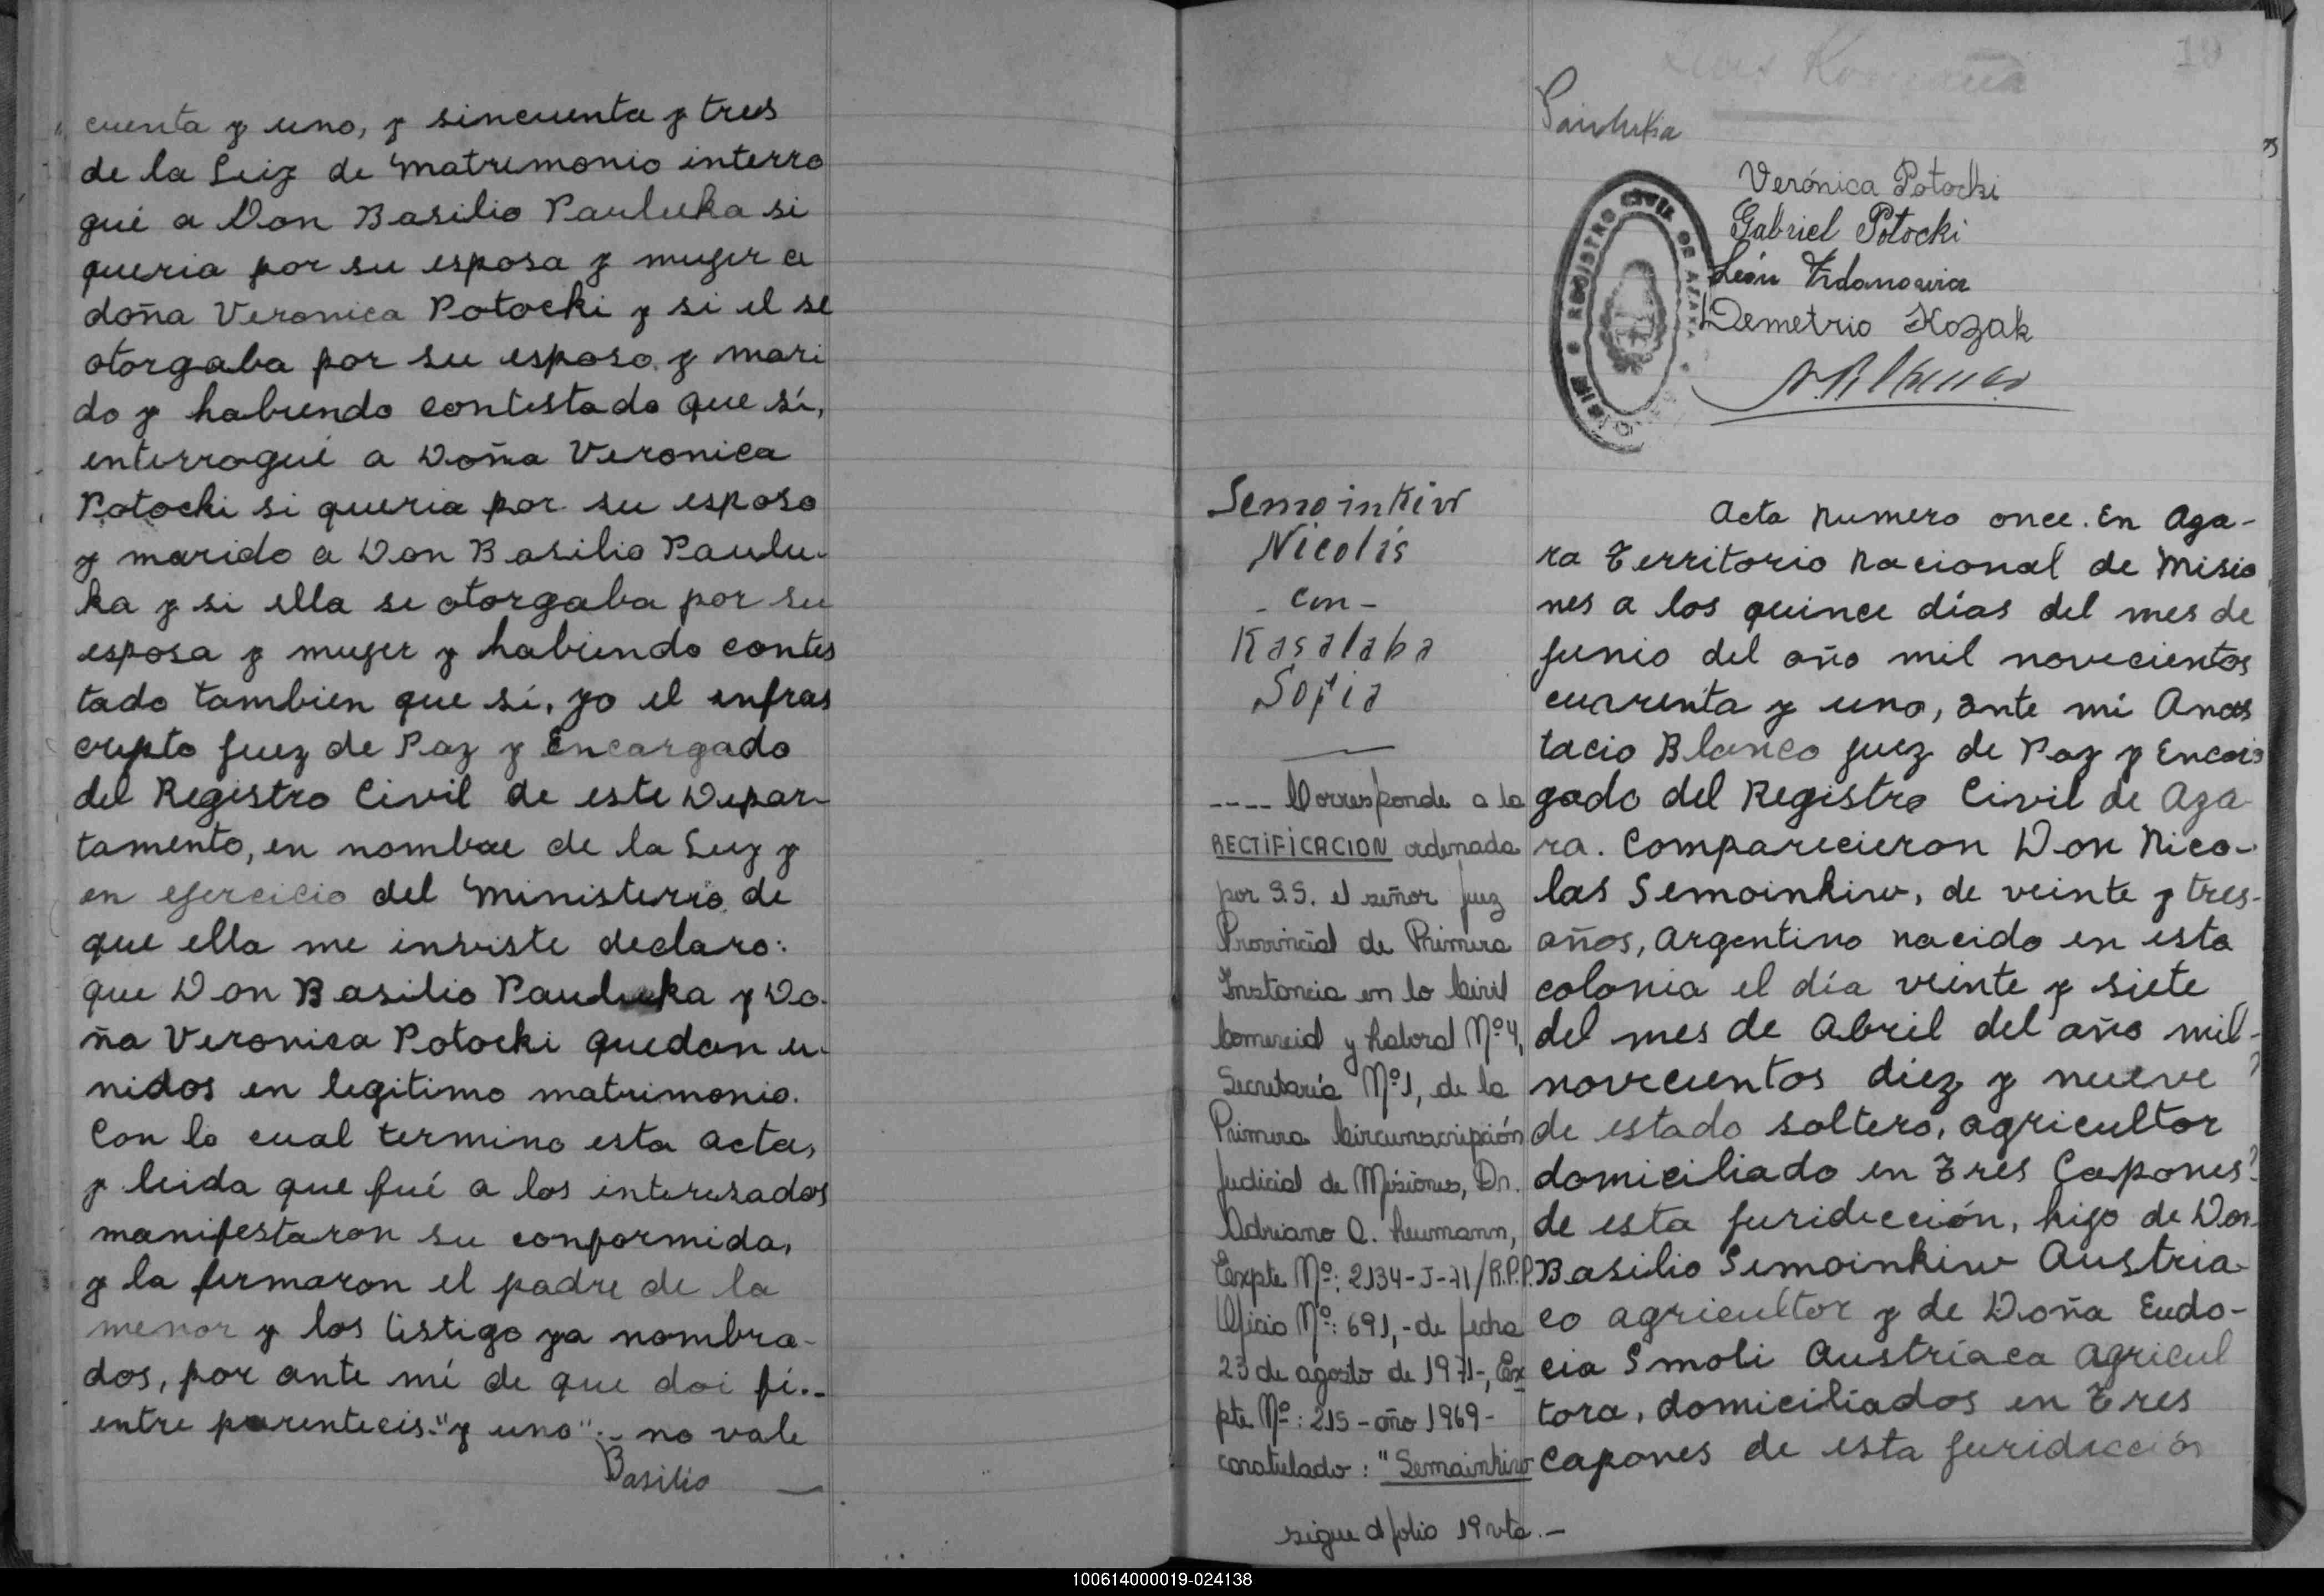 cuenta y uno, y sincuenta y tres
de la Leiy de Matrimonio interro
gué a Don Basilio Pauluka si
queria por su esposa y mujer a
doña Veronica Potocki y si el se
otorgaba por su esposo y mari
do y habiendo contestado que sí,
interrogué a Doña Veronica
Potocki si queria por su esposo
y marido a Don Basilio Paulu-
ka y si ella se otorgaba por su
esposa y mujer y habiendo contes
tado tambien que sí, yo el infras
cripto Juez de Paz y Encargado
del Registro Civil de este Depar-
tamento, en nombre de la Ley y
en ejercicio del Ministerio de
que ella me inviste declaro:
que Don Basilio Pauluka y Do-
ña Veronica Potocki quedan u-
nidos en legitimo matrimonio.
Con lo cual termino esta acta,
y leida que fué a los interesados
manifestaron su conformida,
y la firmaron el padre de la
menor y los tistigo ya nombra-
dos, por ante mí de que doi fi.-
entre parentecis "y uno" - no vale
Basilio
19
Pauluka
Verónica Potocki
Gabriel Potocki
León
Demetrio Kozak
REGISTRO CIVIL DE AZARA
Semoinkiw
Nicolás
- con -
Kasalaba
Sofia
---- Corresponde a la
RECTIFICACION ordenada
por S.S. el señor Juez
Provincial de Primera
Instancia en lo Civil
Comercial y Laboral Nº4,
Secretaría Nº1, de la
Primera Circunscripción
Judicial de Misiones, Dr.
Adriano O. Neumann,
Expte Nº: 2134-J-71/R.P.P.
Oficio Nº: 691,- de fecha
23 de agosto de 1971-, Ex
pte Nº: 215 - año 1969 -
caratulado: "Semainkiw
sigue al folio 19 vta.-
Acta Numero once. En Aza-
ra Territorio Nacional de Misio
nes a los quince días del mes de
Junio del año mil novecientos
cuarenta y uno, ante mí Anas
tacio Blanco Juez de Paz y Encar
gado del Registro Civil de Aza
ra. Comparecieron Don Nico-
las Semoinkiw, de veinte y tres-
años, Argentino nacido en esta
colonia el día veinte y siete
del mes de Abril del año mil-
novecientos diez y nueve
de estado soltero, agricultor
domiciliado en Tres Capones
de esta juridicción, hijo de Don
Basilio Semoinkiw Austria-
co agricultor y de Doña Eudo-
cia Smoli Austríaca agricul
tora, domiciliados en Tres
Capones de esta juridicción